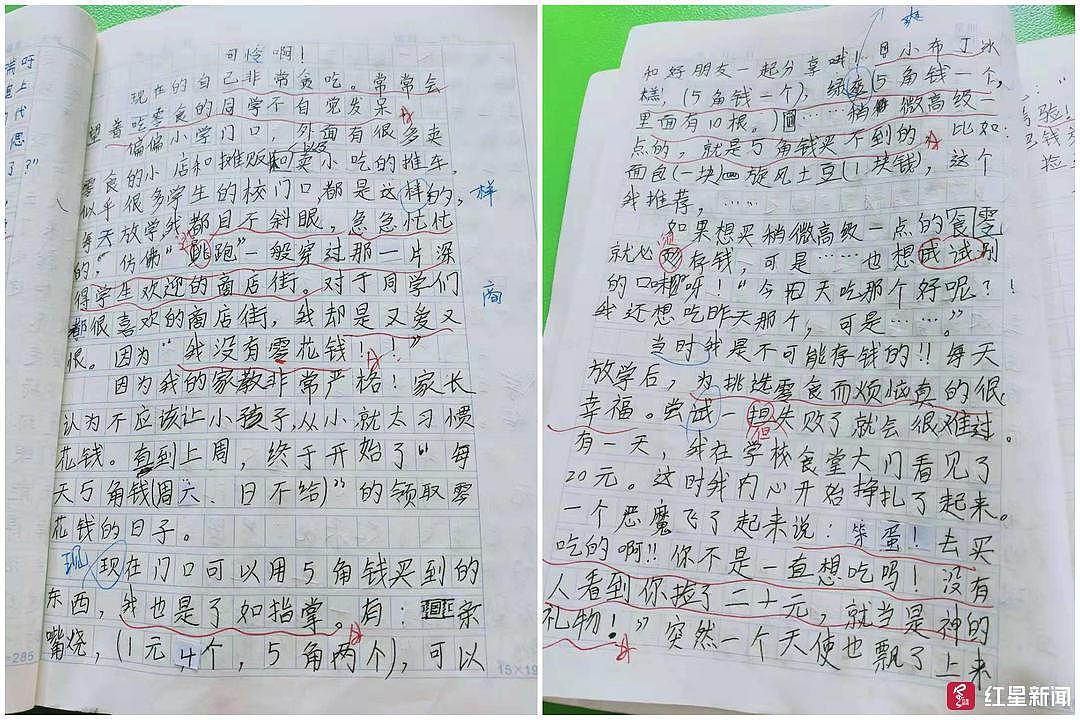 可怜啊！
现在的自己非常贪吃。常常会
望着吃零食的同学不自觉发呆
偏偏小学门口，外面有很多卖
零食的小店和摊贩和卖小吃的推车，
似乎很多学生的校门口，都是这样的，
样
每天放学，我都目不斜眼，急急忙忙
的，仿佛“逃跑”一般穿过那一片深
得学生欢迎的商店街。对于同学们
商
都很喜欢的商店街，我却是又爱又
恨。因为“我没有零花钱！！”
因为我的家教非常严格！家长
认为不应该让小孩子，从小就太习惯
花钱。直到上周，终于开始了“每
天5角钱(周六、日不给)”的领取零
花钱的日子。
现
现在门口可以用5角钱买到的
东西，我也是了如指掌。有：
嘴烧，(1元4个，5角两个)，可以
-285
15×19
爽
和好朋友一起分享哦！小布丁冰
糕，(5角钱一个)，绿爽(5角钱一个，
里面有10根。)……稍微高级一
点的，就是5角钱买不到的。比如：
面包(一块)旋风土豆(1块钱)，这个
我推荐，……
如果想买稍微高级一点的食零
就必须存钱，可是……也想试试别
的口味呀！“今天吃那个好呢？！
我还想吃昨天那个，可是……。”
当时我是不可能存钱的!!每天
放学后，为挑选零食而烦恼真的很
幸福。尝试一但失败了就会很难过。
有一天，我在学校食堂大门看见了
20元。这时我内心开始挣扎了起来。
一个恶魔飞了起来说：笨蛋！去买
吃的啊!!你不是一直想吃吗！没有
人看到你捡了二十元，就当是神的
礼物！”突然一个天使也飘了上来
红星新闻